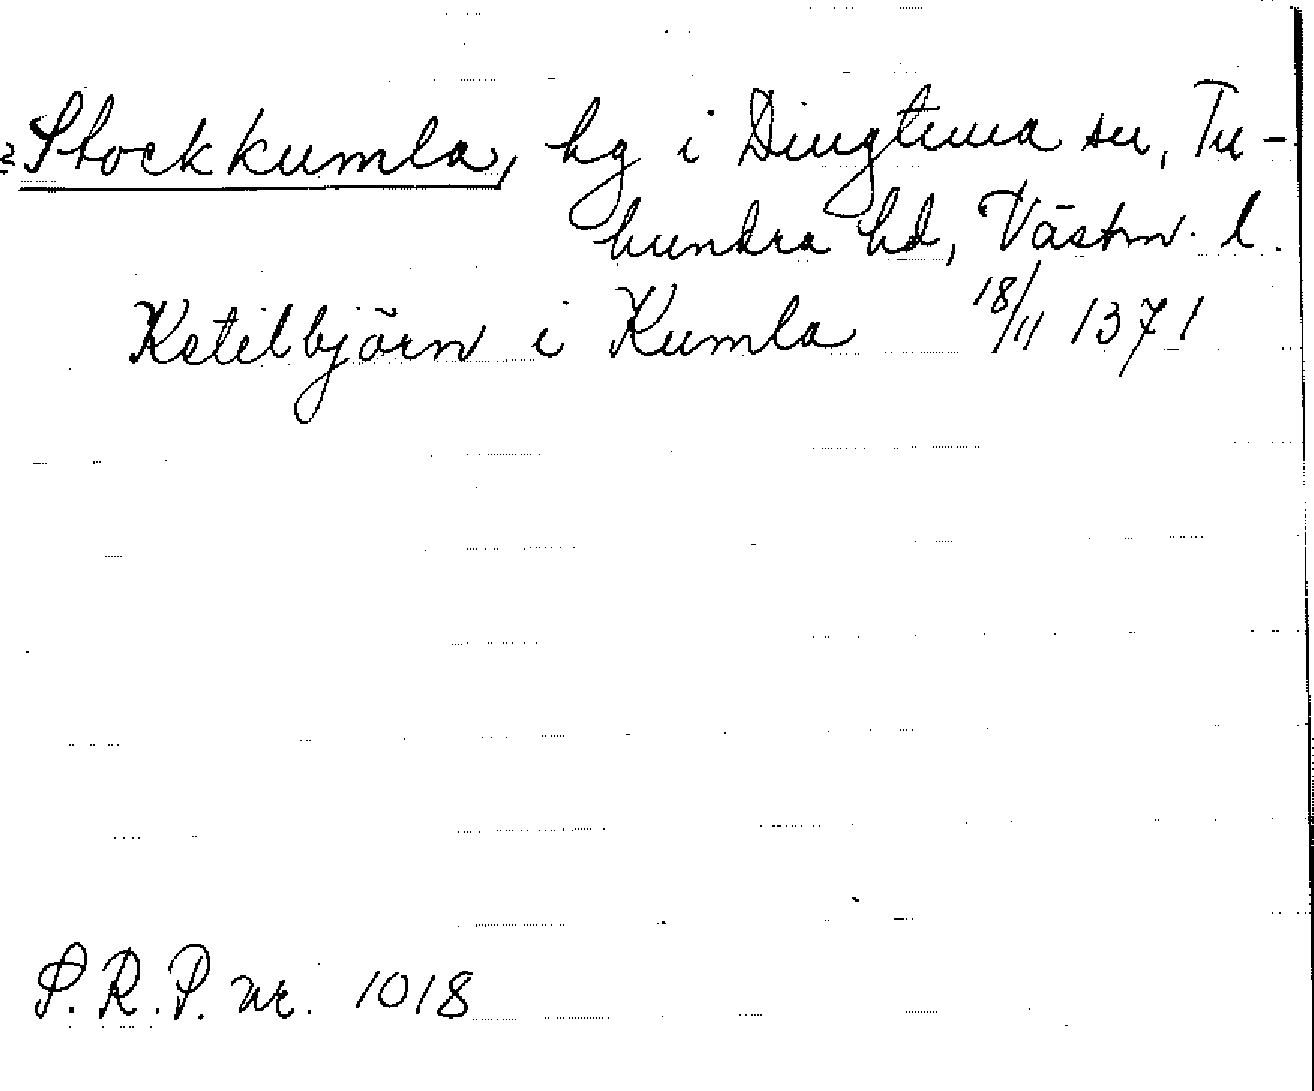 Stockkumla, hg i Dingtuna sn, Tu-
hundra hd, Västm. l.
Ketilbjörn i Kumla 18/11 1371
S.R.P. nr. 1018